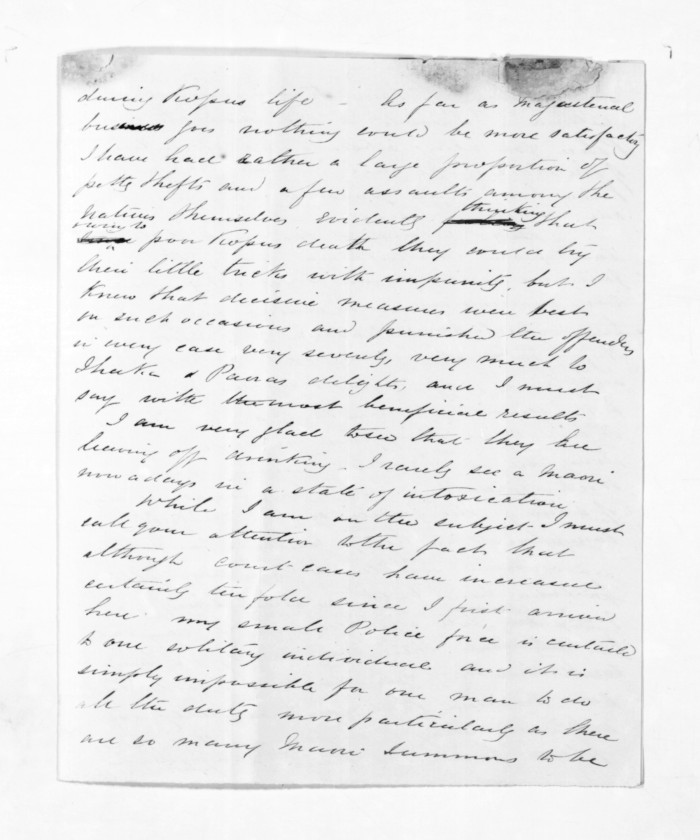 during Kopus life - As far as magisterial
business goes nothing could be more satisfactory
I have had rather a large proportion of
petty thefts and a few assaults among the
natives themselves evidently thinking that
owing to poor Kopus death they could try
their little tricks with impunity, but I
knew that decisive measures were best
on such occasions and punished the offenders
in every case very severely, very much to
Ihaka & Paoras delight, and I must
say with the most beneficial results
I am very glad to see that they are
leaving off drinking - I rarely see a Maori
now a days in a state of intoxication
While I am on the subject I must
call your attention to the fact that
although court cases have increased
certainly tenfold since I first arrived
here my small Police force is curtailed
to one solitary individual and it is
simply impossible for one man to do
all the duty more particularly as there
are so many Maori Summons to be